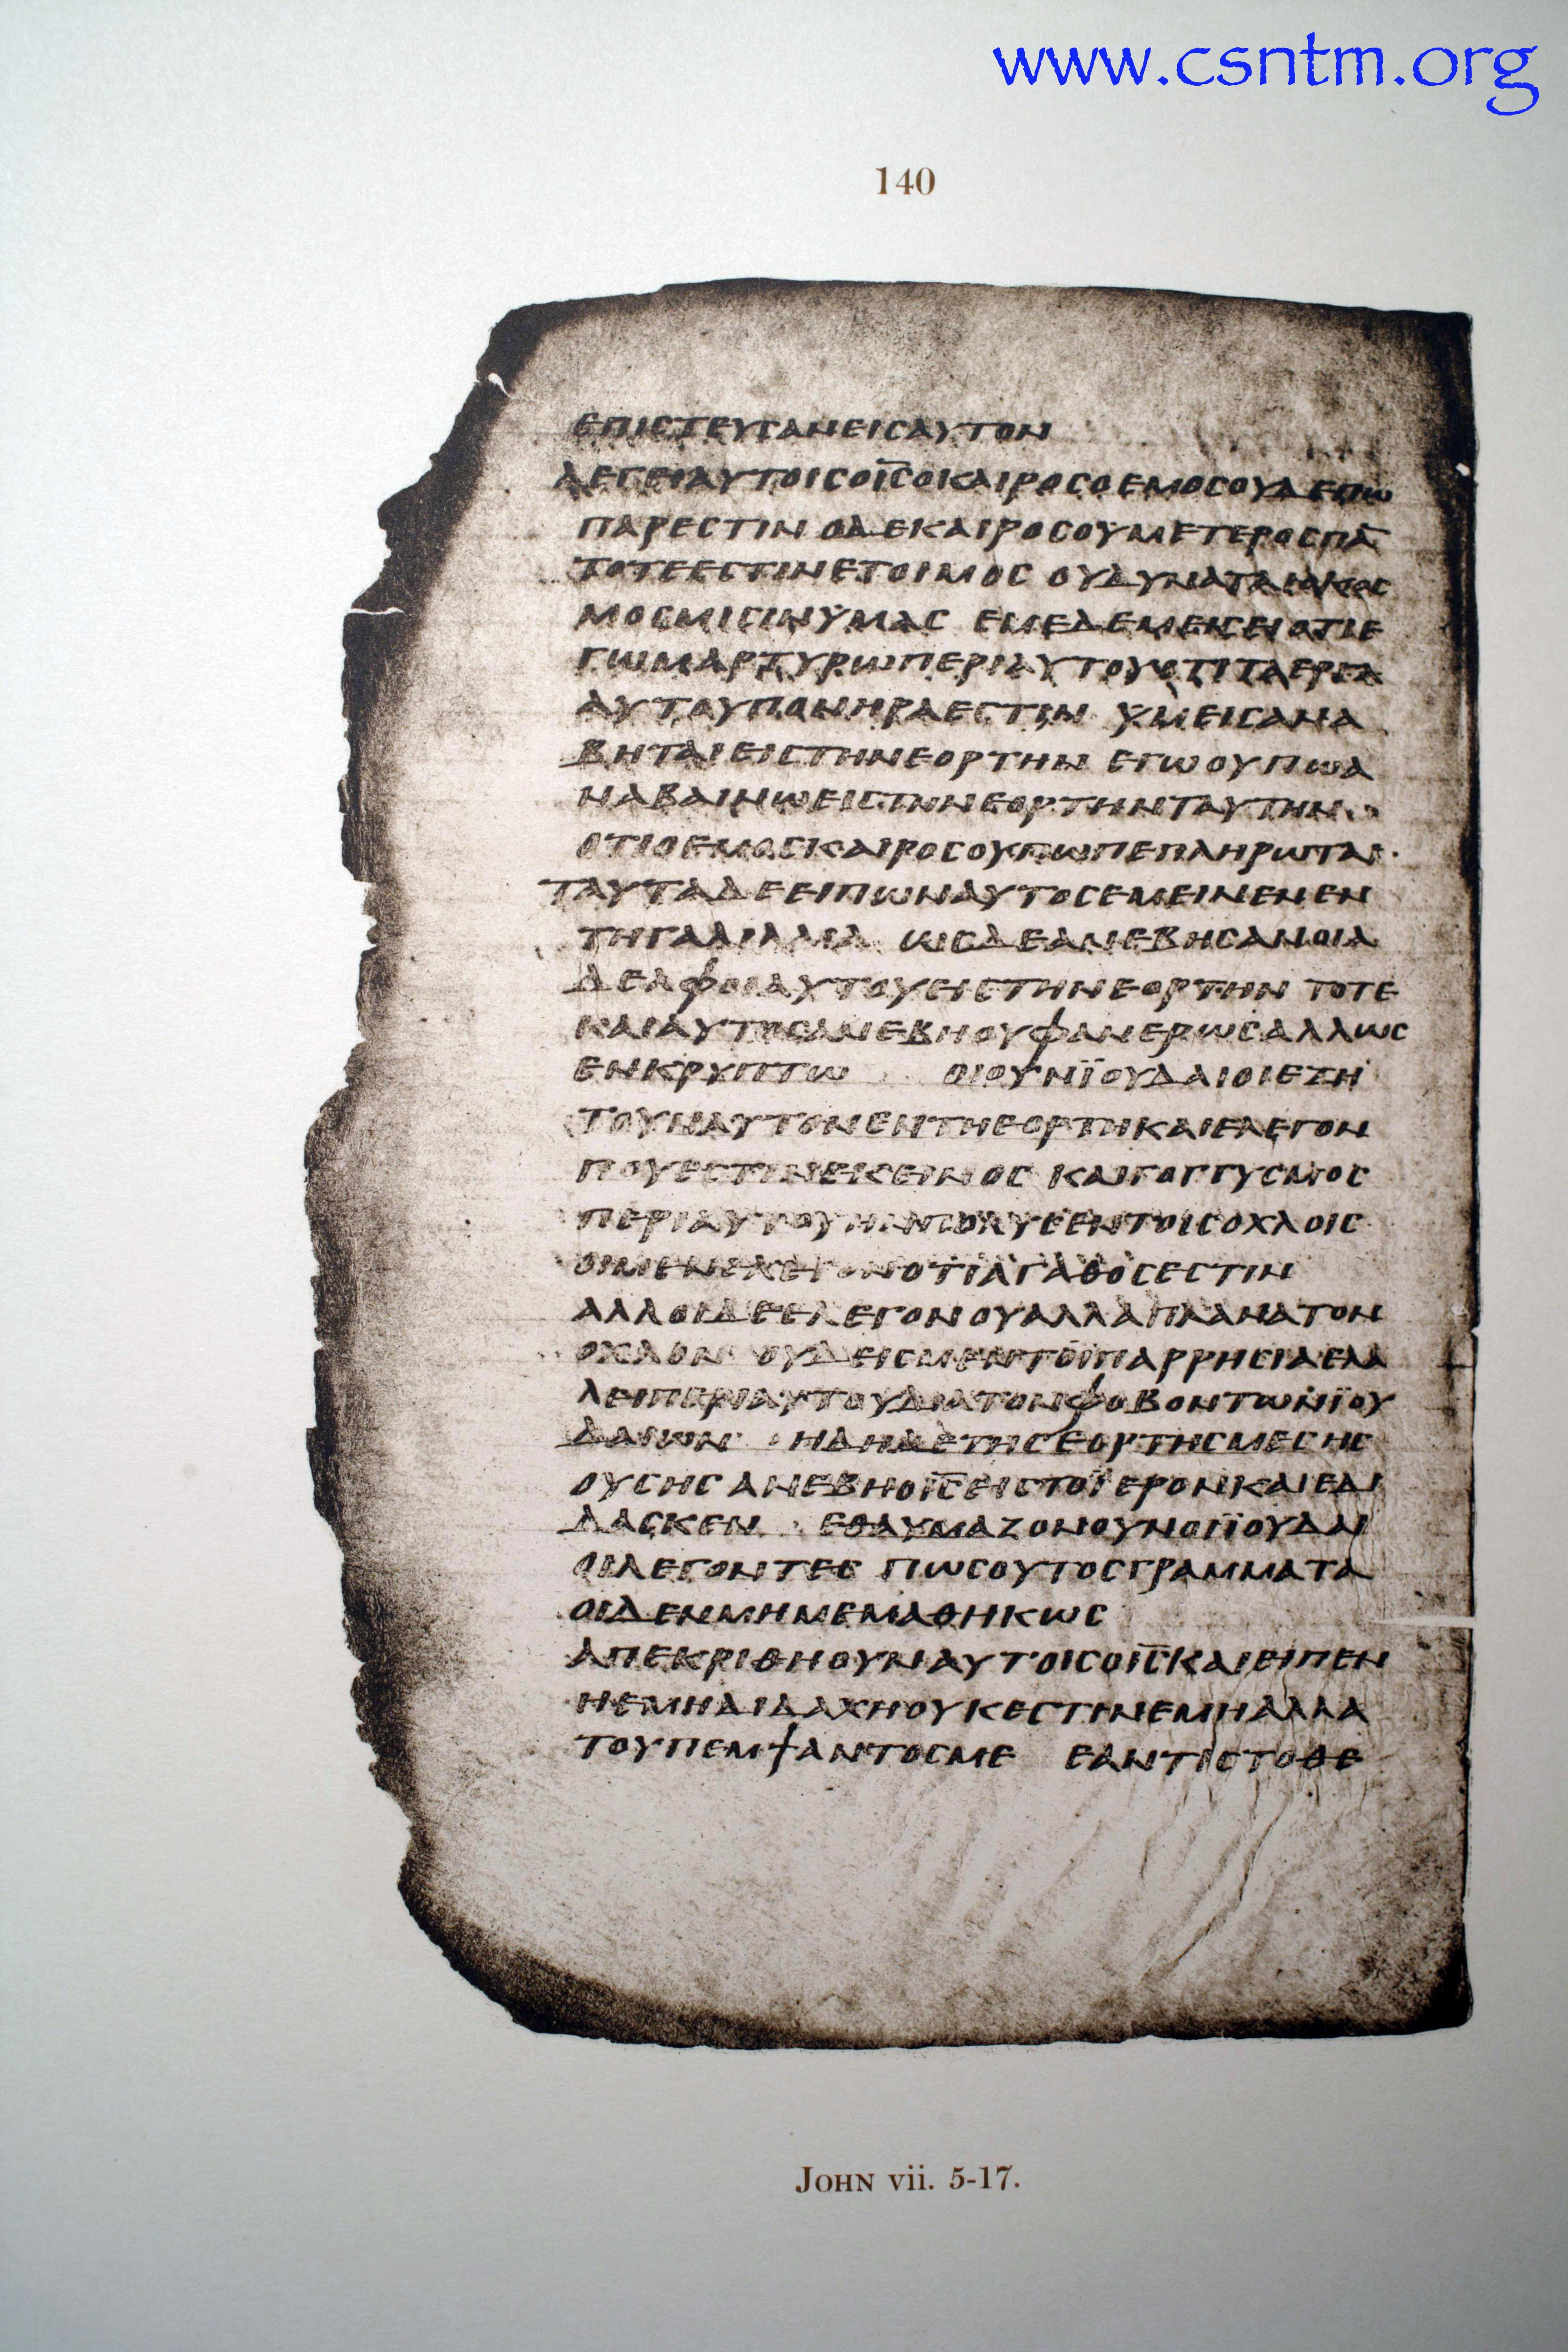 www.csntm.org
140
ΕΠΙϹΤΕΥϹΑΝΕΙϹΑΥΤΟΝ
ΛΕΓΕΙΑΥΤΟΙϹΟΙ̅Ϲ̅ΟΚΑΙΡΟϹΟΕΜΟϹΟΥΔΕΠΩ
ΠΑΡΕϹΤΙΝ ΟΔΕΚΑΙΡΟϹΟΥΜΕΤΕΡΟϹΠΑ̅
ΤΟΤΕΕϹΤΙΝΕΤΟΙΜΟϹ ΟΥΔΥΝΑΤΑΙΟΚΟϹ
ΜΟϹΜΙϹΙΝΥΜΑϹ ΕΜΕΔΕΜΕΙϹΕΙΟΤΙΕ
ΓΩΜΑΡΤΥΡΩΠΕΡΙΑΥΤΟΥΟΤΙΤΑΕΡΓΑ
ΑΥΤΟΥΠΟΝΗΡΑΕϹΤΙΝ ΥΜΕΙϹΑΝΑ
ΒΗΤΑΙΕΙϹΤΗΝΕΟΡΤΗΝ ΕΓΩΟΥΠΩΑ
ΝΑΒΑΙΝΩΕΙϹΤΗΝΕΟΡΤΗΝΤΑΥΤΗΝ
ΟΤΙΟΕΜΟϹΚΑΙΡΟϹΟΥΠΩΠΕΠΛΗΡΩΤΑΙ·
ΤΑΥΤΑΔΕΕΙΠΩΝΑΥΤΟϹΕΜΕΙΝΕΝΕΝ
ΤΗΓΑΛΙΛΑΙΑ ΩϹΔΕΑΝΕΒΗϹΑΝΟΙΑ
ΔΕΛΦΟΙΑΥΤΟΥΕΙϹΤΗΝΕΟΡΤΗΝ ΤΟΤΕ
ΚΑΙΑΥΤΟϹΑΝΕΒΗΟΥΦΑΝΕΡΩϹΑΛΛΩϹ
ΕΝΚΡΥΠΤΩ ΟΙΟΥΝΪΟΥΔΑΙΟΙΕΖΗ
ΤΟΥΝΑΥΤΟΝΕΝΤΗΕΟΡΤΗΚΑΙΕΛΕΓΟΝ
ΠΟΥΕϹΤΙΝΕΚΕΙΝΟϹ ΚΑΙΓΟΓΓΥϹΜΟϹ
ΠΕΡΙΑΥΤΟΥΗΝΠΟΛΥϹΕΝΤΟΙϹΟΧΛΟΙϹ
ΟΙΜΕΝΕΛΕΓΟΝΟΤΙΑΓΑΘΟϹΕϹΤΙΝ
ΑΛΛΟΙΔΕΕΛΕΓΟΝΟΥΑΛΛΑΠΛΑΝΑΤΟΝ
ΟΧΛΟΝ ΟΥΔΕΙϹΜΕΝΤΟΙΠΑΡΡΗϹΙΑΕΛΑ
ΛΕΙΠΕΡΙΑΥΤΟΥΔΙΑΤΟΝΦΟΒΟΝΤΩΝΪΟΥ
ΔΑΙΩΝ ΗΔΗΔΕΤΗϹΕΟΡΤΗϹΜΕϹΗϹ
ΟΥϹΗϹΑΝΕΒΗΟΙ̅Ϲ̅ΕΙϹΤΟΪΕΡΟΝΚΑΙΕΔΙ
ΔΑϹΚΕΝ ΕΘΑΥΜΑΖΟΝΟΥΝΟΙΪΟΥΔΑΙ
ΟΙΛΕΓΟΝΤΕϹ ΠΩϹΟΥΤΟϹΓΡΑΜΜΑΤΑ
ΟΙΔΕΝΜΗΜΕΜΑΘΗΚΩϹ
ΑΠΕΚΡΙΘΗΟΥΝΑΥΤΟΙϹΟΙ̅Ϲ̅ΚΑΙΕΙΠΕΝ
ΗΕΜΗΔΙΔΑΧΗΟΥΚΕϹΤΙΝΕΜΗΑΛΛΑ
ΤΟΥΠΕΜΨΑΝΤΟϹΜΕ ΕΑΝΤΙϹΤΟΘΕ
JOHN vii. 5-17.